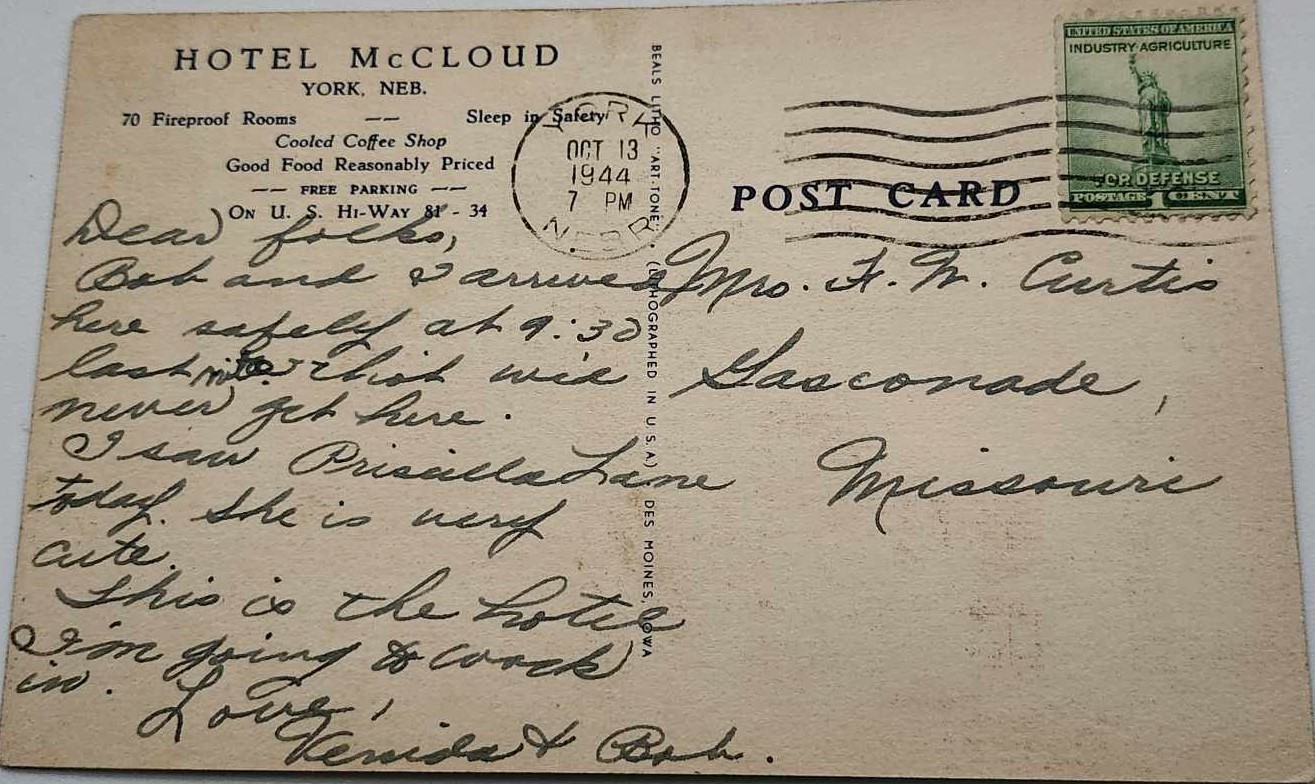 HOTEL McCLOUD
YORK, NEB.
70 Fireproof Rooms -- Sleep in Safety
Cooled Coffee Shop
Good Food Reasonably Priced
-- FREE PARKING --
ON U. S. HI-WAY 81 - 34
Dear folks,
Bob and I arrived
here safely at 9:30
last nite. Thot we'd
never get here.
I saw Priscilla Lane
today. She is very
cute.
This is the hotel
I'm going to work
in.
Love,
Venida & Bob.
BEALS LITHO "ART-TONE" (LITHOGRAPHED IN U.S.A.) DES MOINES, IOWA
YORK
OCT 13
1944
7 PM
NEBR
POST CARD
UNITED STATES OF AMERICA
INDUSTRY AGRICULTURE
FOR DEFENSE
POSTAGE 1 CENT
Mrs. F. W. Curtis
Gasconade,
Missouri